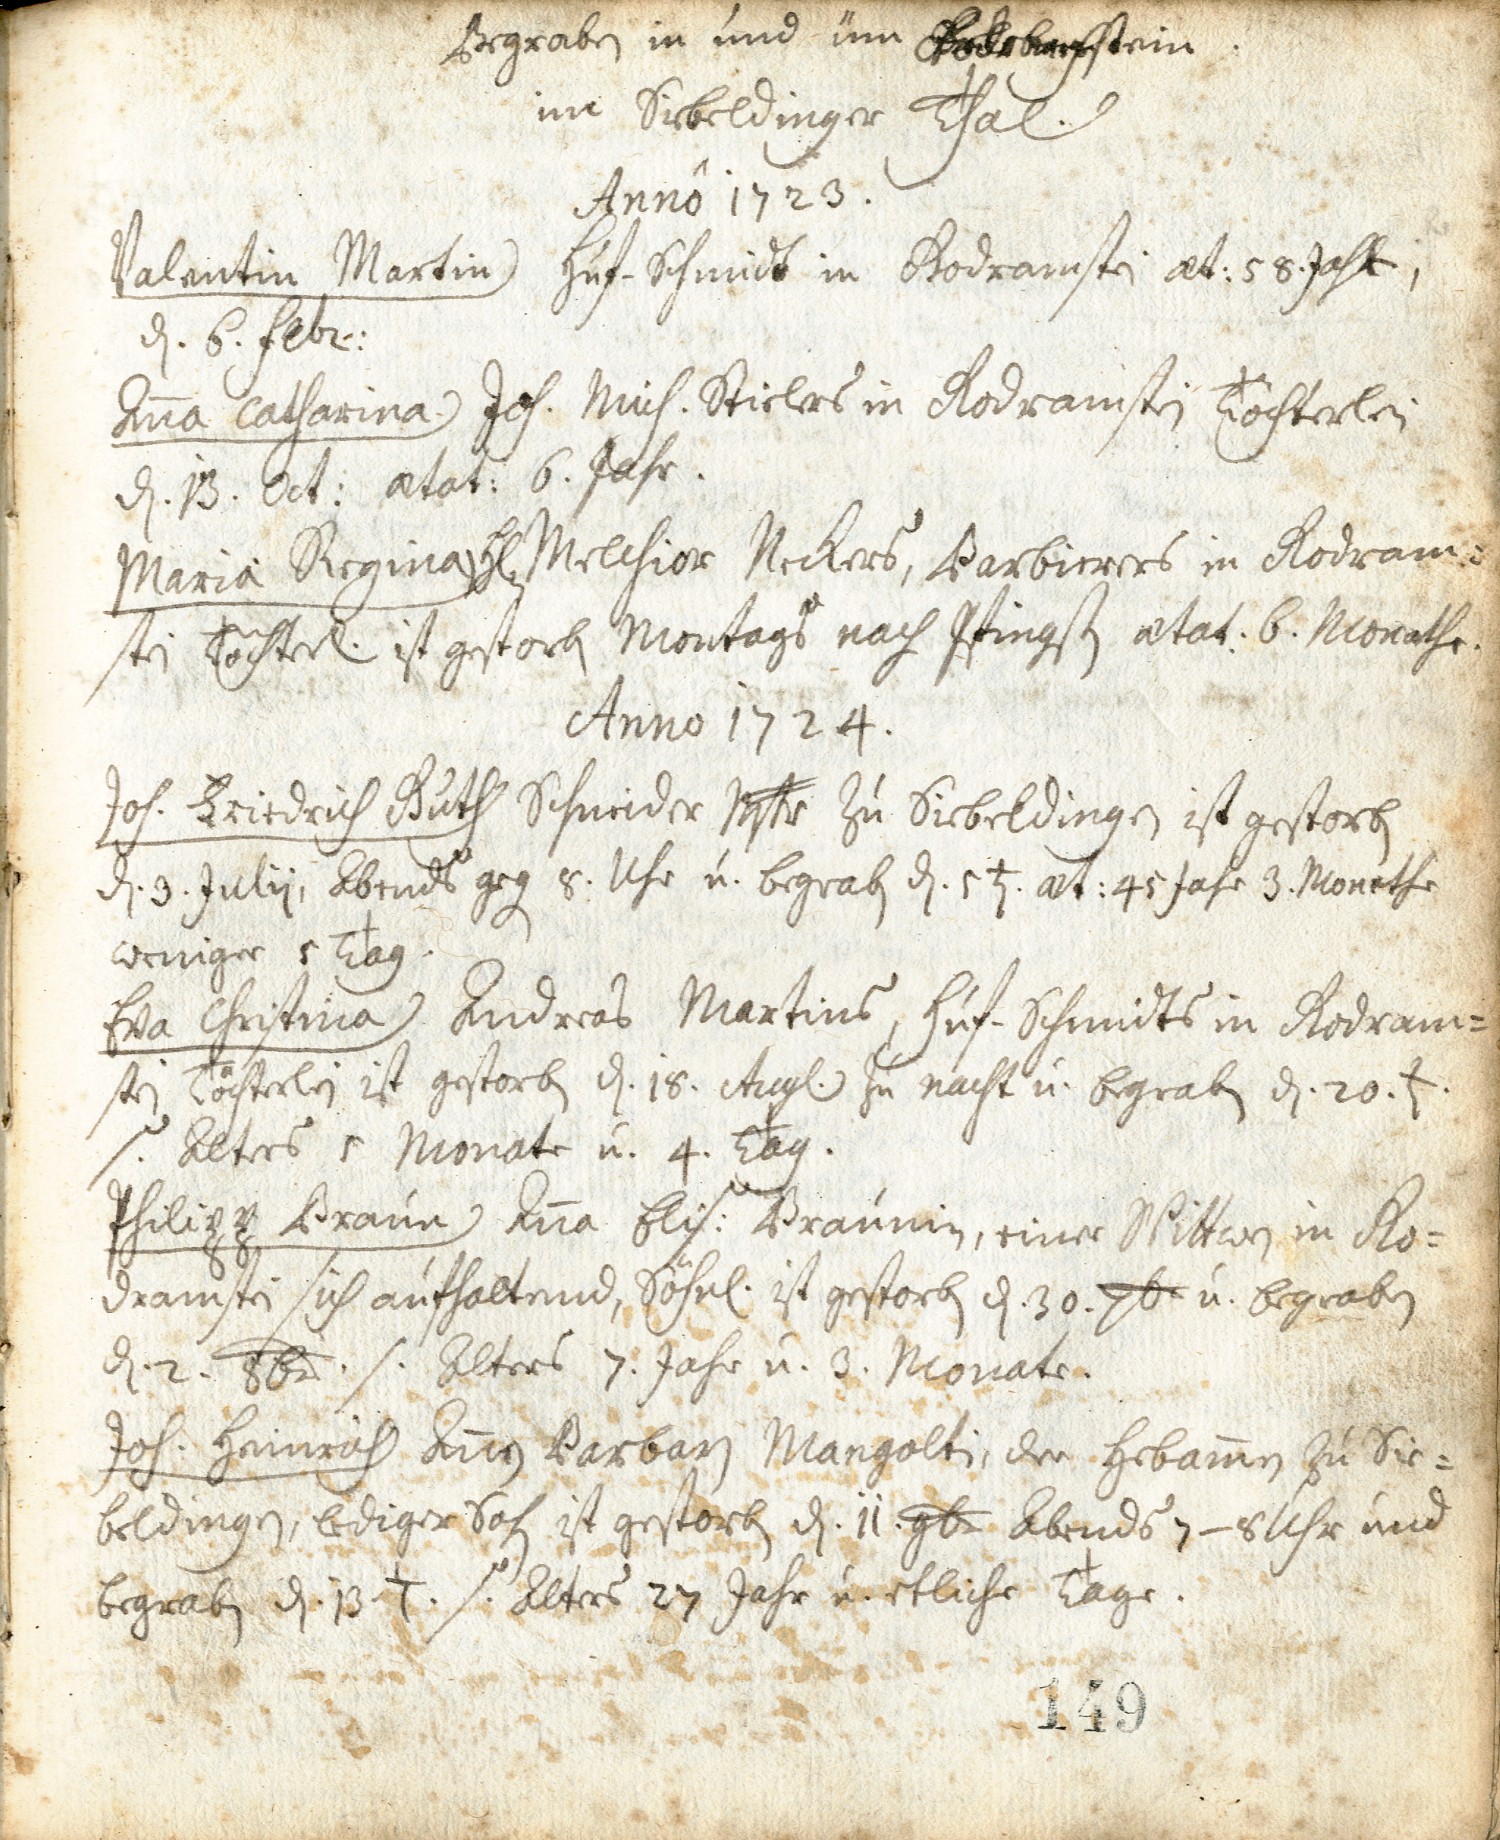 Begraben in und üm Rodramstein
im Siebeldinger Thal.
Anno 1723.
Valentin Martin Huf-Schmidt in Rodramstei æt: 58. Jahr,
d. 6. Febr:
Anna Catharina Joh. Mich. Stielers in Rodramstei Töchterlei
d. 13. Oct: ætat: 6. Jahr.
Maria Regina Melchior Neckers, Barbierers in Rodram=
stei Töchterl. ist gestorb Montags nach Pfingst ætat. 6. Monathe.
Anno 1724.
Joh. Friedrich Guth Schneider Mstr zu Siebeldingen ist gestorb
d. 3. Julij, Abends geg 8. Uhr u. begrab d. 5 t. æt: 45 Jahr 3. Monathe
weniger 5 Tag.
Eva Christina Andreas Martins, Huf-Schmidts in Rodram=
stei Töchterlei ist gestorb d. 18. Aug. zu nacht u. begrab d. 20. t.
s. Alters 5 Monate u. 4. Tag.
Philipp Braun Anna Elis: Braunin, einer Wittwen in Ro=
dramstei sich aufhaltend, Söhnl. ist gestorb d. 30. 7br u. begraben
d. 2. 8br. s. Alters 7. Jahr u. 3. Monate.
Joh. Heinrich Annen Barbaren Mangolti, der Hebammen zu Sie=
beldingen, lediger Soh ist gestorb d. 11. 9br Abends 7-8 Uhr und
begrab d. 13. t. s. Alters 27 Jahr u. etliche Tage.
149